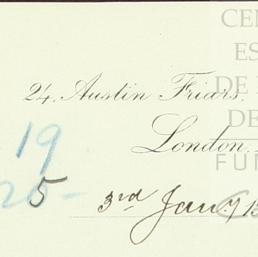 CEN
ES
DE
DE
FUN
24, Austin Friars,
London.
19
25-
5
3rd Jany 19